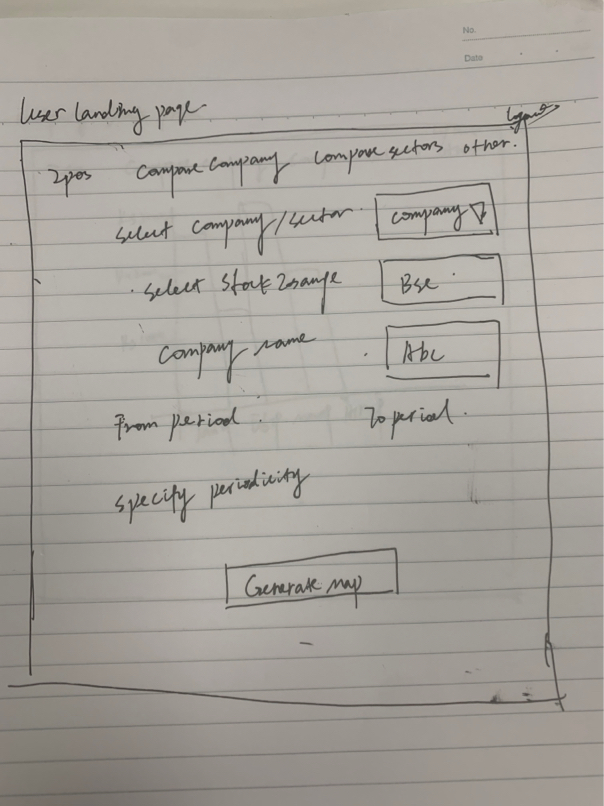 No.
Date
User landing page
Logout
Ipos Compare Company compare sectors other.
select company/sector company
select Stock Exange Bse
Company name Abc
From period To period.
specify periodicity
Generate map